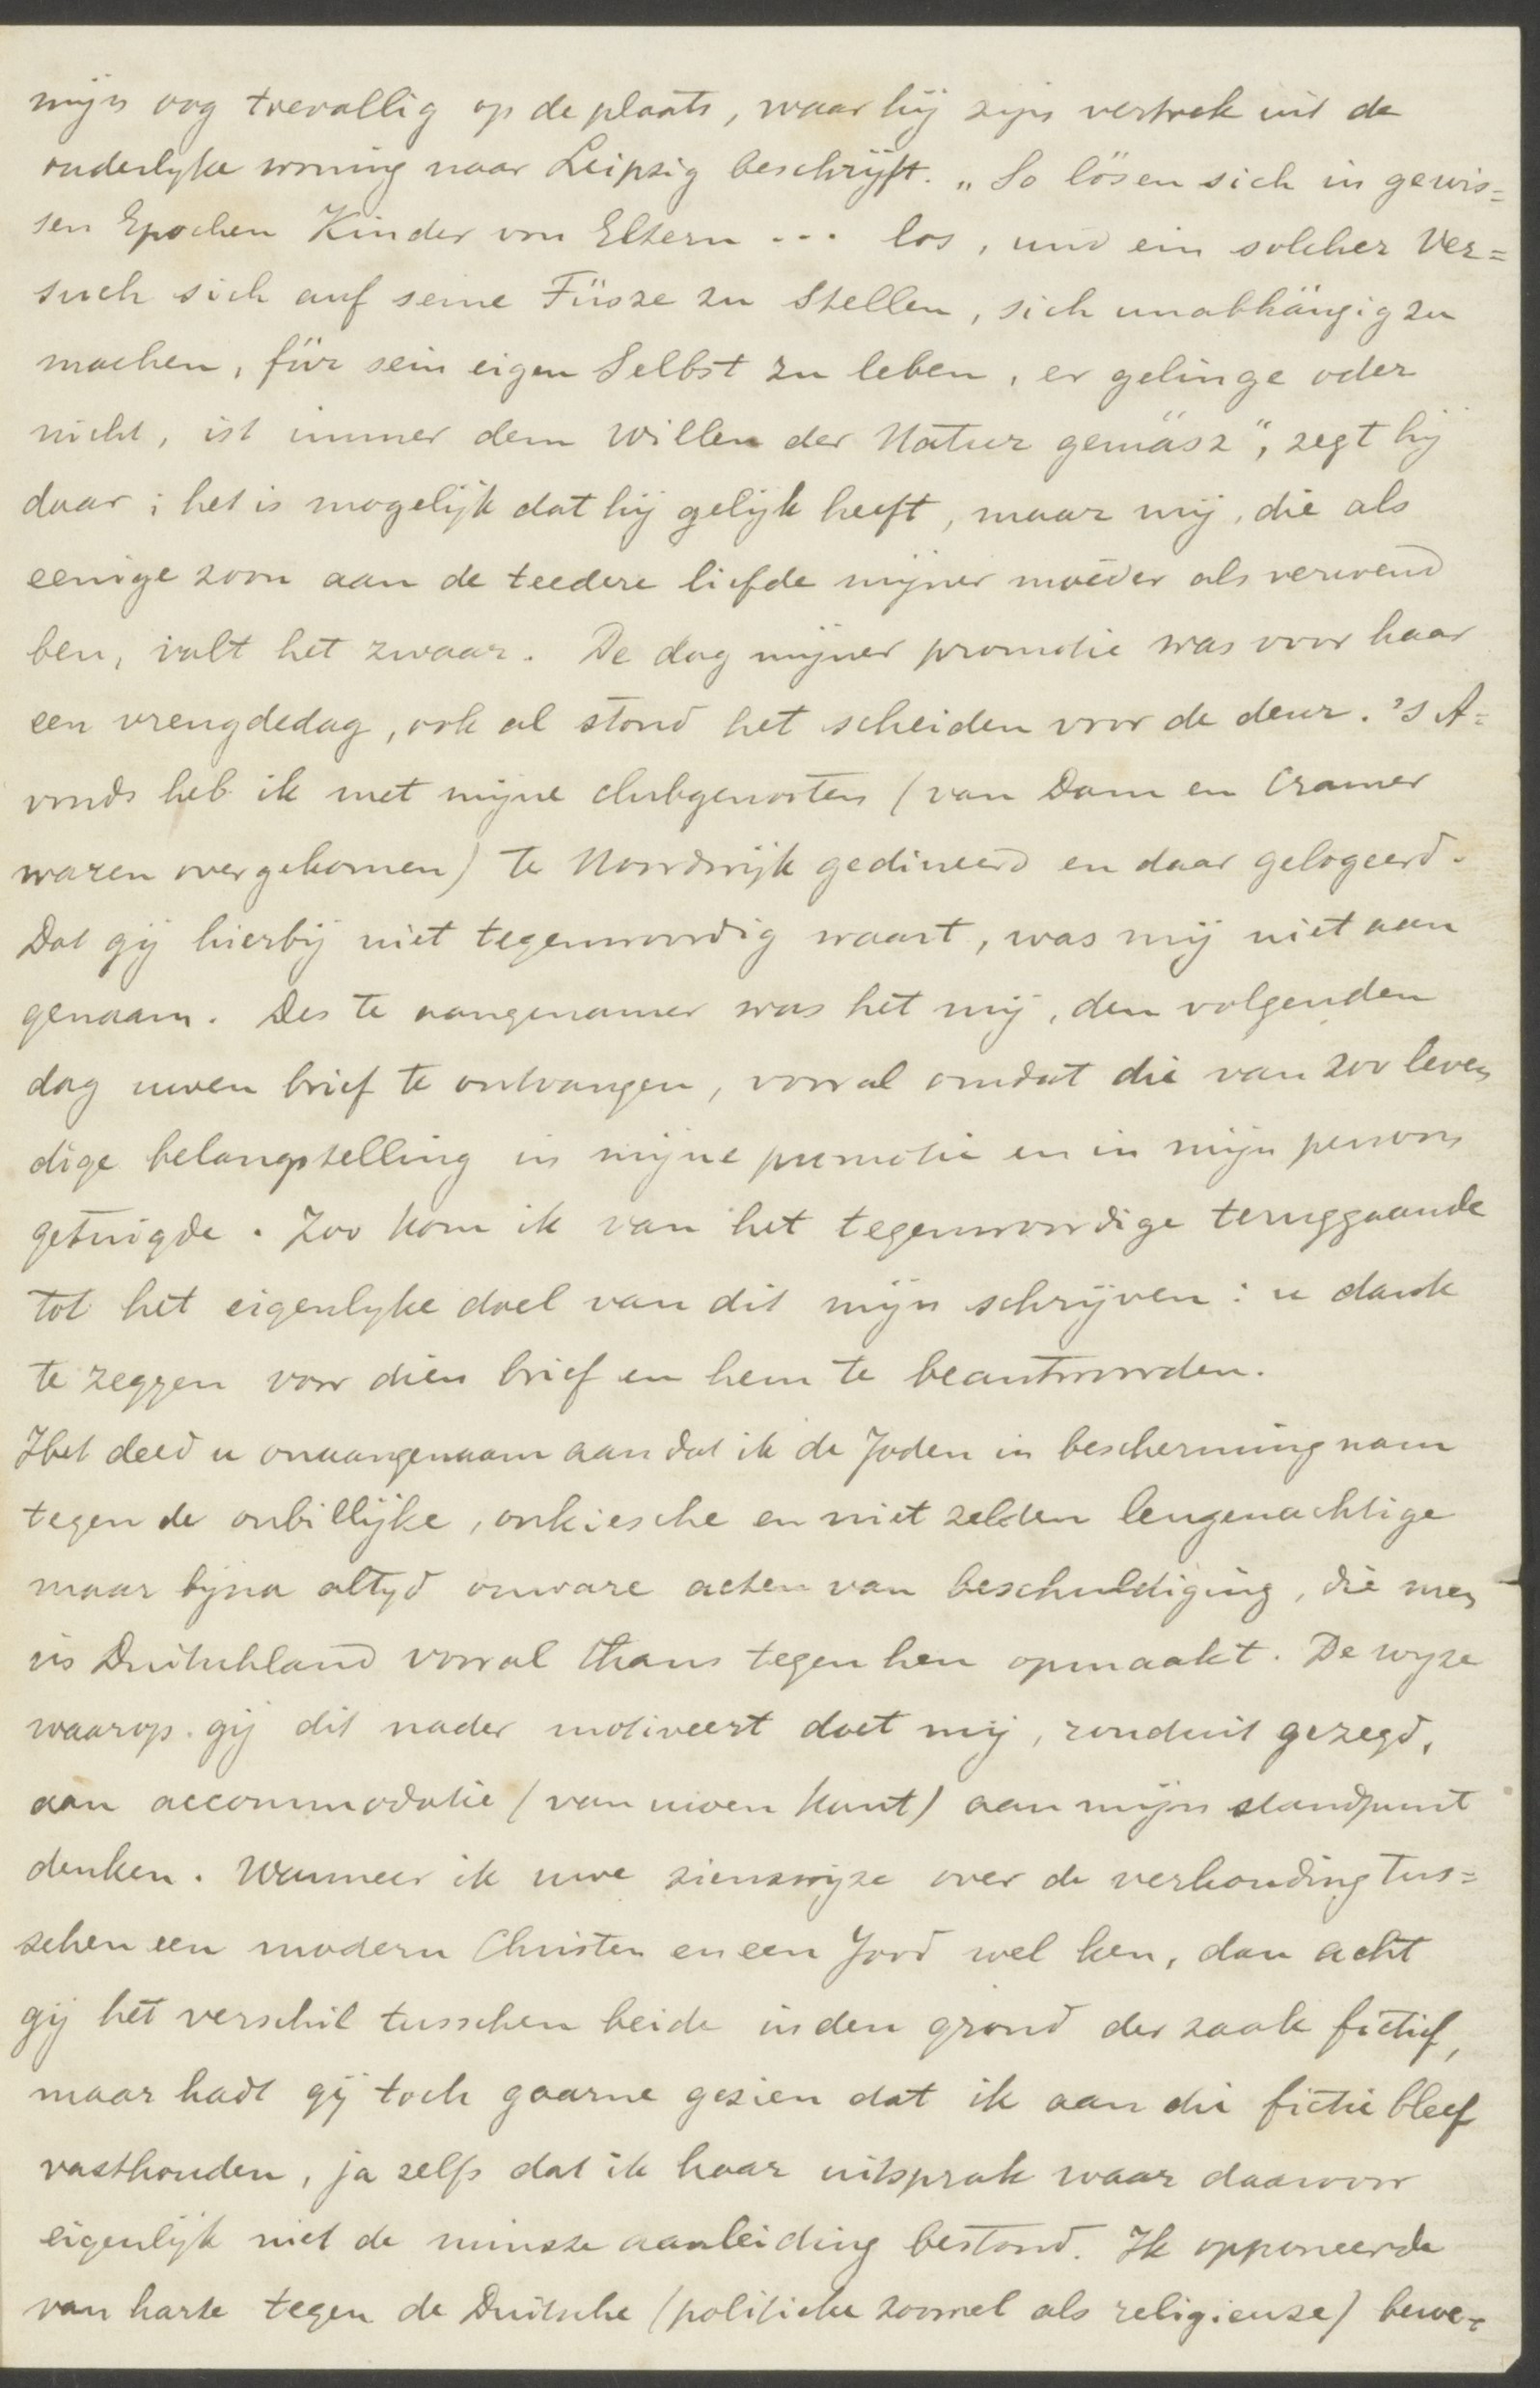 mijn oog toevallig op de plaats, waar hij zijn vertrek uit de
ouderlyke woning naar Leipzig beschrijft. „So lösen sich in gewis=
sen Epochen Kinder von Eltern ... los, und ein solcher Ver=
such sich auf seine Füsze zu stellen, sich unabhängig zu
machen, für sein eigen Selbst zu leben, er gelinge oder
nicht, ist immer dem Willen der Natur gemäsz", zegt hij
daar; het is mogelijk dat hij gelijk heeft, maar mij, die als
eenige zoon aan de teedere liefde mijner moeder als verwend
ben, valt het zwaar. De dag mijner promotie was voor haar
een vreugdedag, ook al stond het scheiden voor de deur. 's A=
vonds heb ik met mijne clubgenooten (van Dam en Cramer
waren overgekomen) te Noordwijk gedineerd en daar gelogeerd.
Dat gij hierbij niet tegenwoordig waart, was mij niet aan
genaam. Des te aangenamer was het mij, den volgenden
dag uwen brief te ontvangen, vooral omdat die van zoo leven
dige belangstelling in mijne promotie en in mijn persoon
getuigde. Zoo kom ik van het tegenwoordige teruggaande
tot het eigenlyke doel van dit mijn schrijven: u dank
te zeggen voor dien brief en hem te beantwoorden.
Het deed u onaangenaam aan dat ik de Joden in bescherming nam
tegen de onbillijke, onkiesche en niet zelden leugenachtige
maar byna altyd onware acten van beschuldiging, die men
in Duitschland vooral thans tegen hen opmaakt. De wyze
waarop gij dit nader motiveert doet mij, ronduit gezegd,
aan accommodatie (van uwen kant) aan mijn standpunt
denken. Wanneer ik uwe zienswyze over de verhouding tus=
schen een modern Christen en een Jood wel ken, dan acht
gij het verschil tusschen beide in den grond der zaak fictief,
maar hadt gij toch gaarne gezien dat ik aan die fictie bleef
vasthouden, ja zelfs dat ik haar uitsprak waar daarvoor
eigenlijk niet de minste aanleiding bestond. Ik opponeerde
van harte tegen de Duitsche (politieke zoowel als religieuze) bewe=